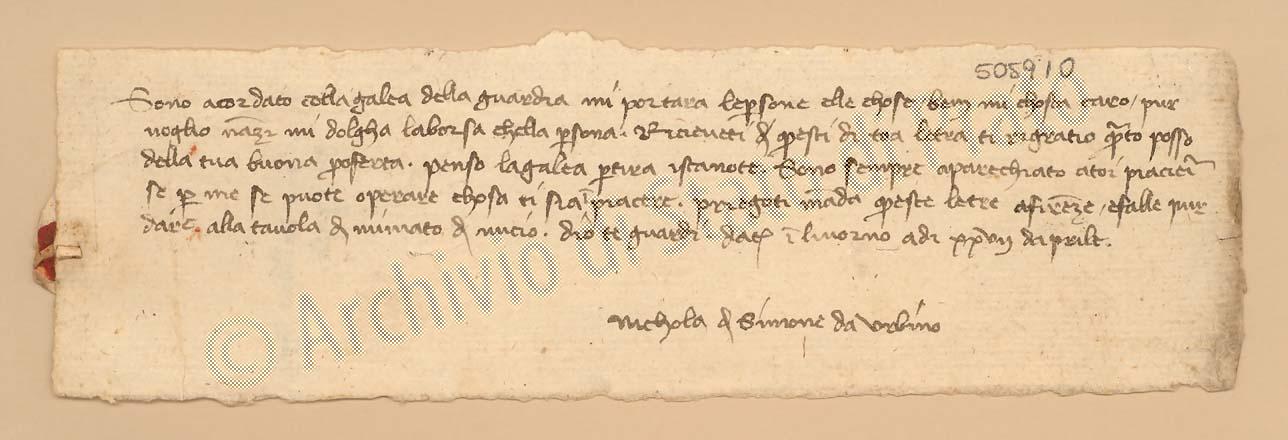 508910
Sono acordato cholla galea della guardia mi portara le psone elle chose / bem mi chosta caro / pur
voglio mi dolgha la borsa chella psona. Ricieveti di questi di toa letra ti rigratio posso
della tua buona proferta. penso la galea ptira istanote. Sono sempre aparechiato
se p me se puote operare chosa ti sia piacere. priegoti mada queste letre a firenze / e falle pur
dare. alla tavola di di nucio. dio te guardi. dat i livorno a di daprile.
Nichola di Simone da Urbino
© Archivio di Stato di Prato